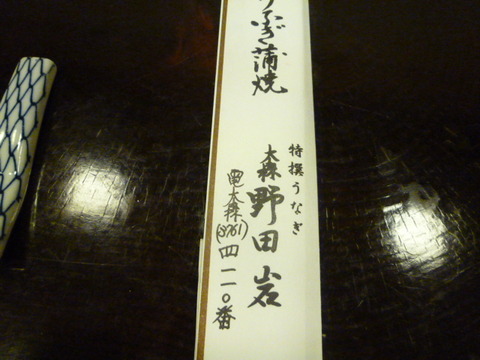 うなぎ蒲焼
特撰うなぎ
大森 野田岩
電大森(3761)四二一〇番